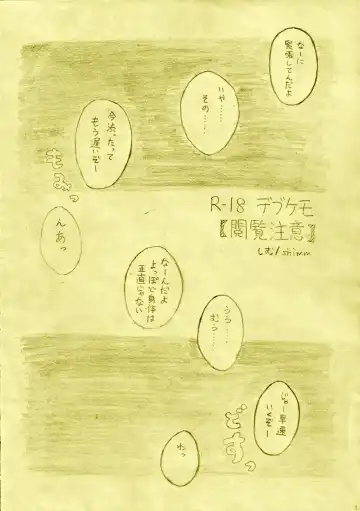 なーに
緊張してんだよ
いや……
その……
今渋ったって
もう遅いぞー
もみっ
んあっ
R-18 デブケモ
【閲覧注意】
しむ/shimm
なーんだよ
よっぽど身体は
正直じゃない
うう……
むう……
じゃー早速
いくぞー
どすっ
わっ